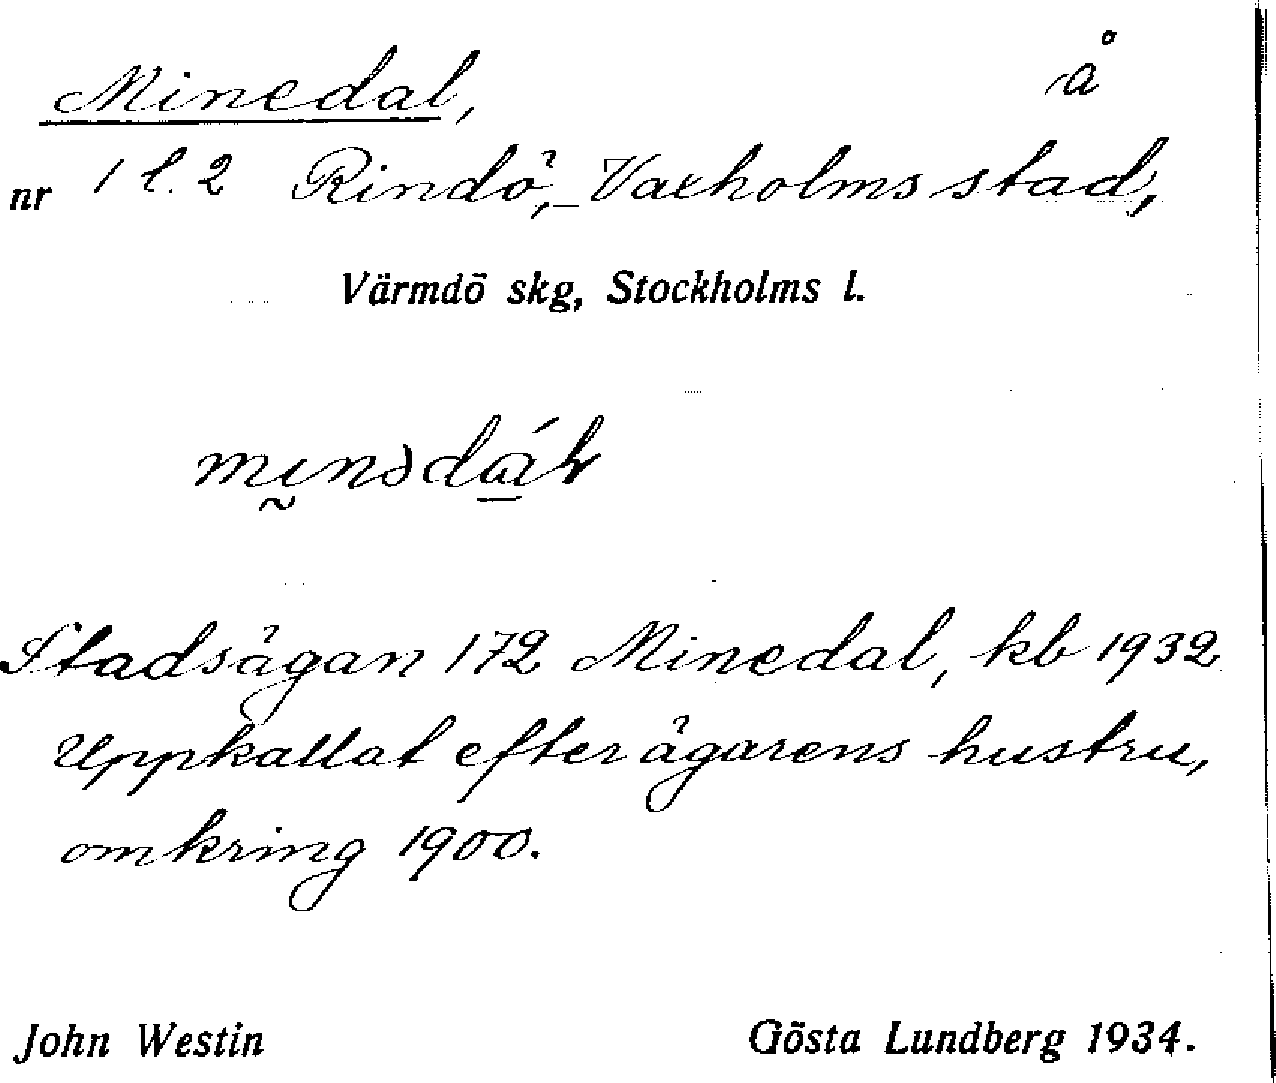 Minedal, å
nr 1 l. 2 Rindö, Vaxholms stad,
Värmdö skg, Stockholms l.
Stadsägan 172 Minedal, kb 1932
Uppkallat efter ägarens hustru,
omkring 1900.
John Westin Gösta Lundberg 1934.